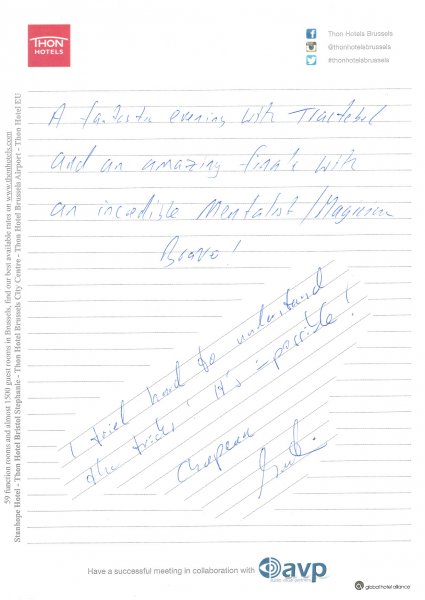 THON
HOTELS
Thon Hotels Brussels
@thonhotelsbrussels
#thonhotelsbrussels
A fantastic evening with Tractebel
and an amazing finale with
an incredible Mentalist / Magician
Bravo !
I tried hard to understand
the tricks ! It's impossible !
Chapeau
59 function rooms and almost 1500 guest rooms in Brussels, find our best available rates on www.thonhotels.com
Stanhope Hotel - Thon Hotel Bristol Stephanie - Thon Hotel Brussels City Centre - Thon Hotel Brussels Airport - Thon Hotel EU
Have a successful meeting in collaboration with avp
global hotel alliance